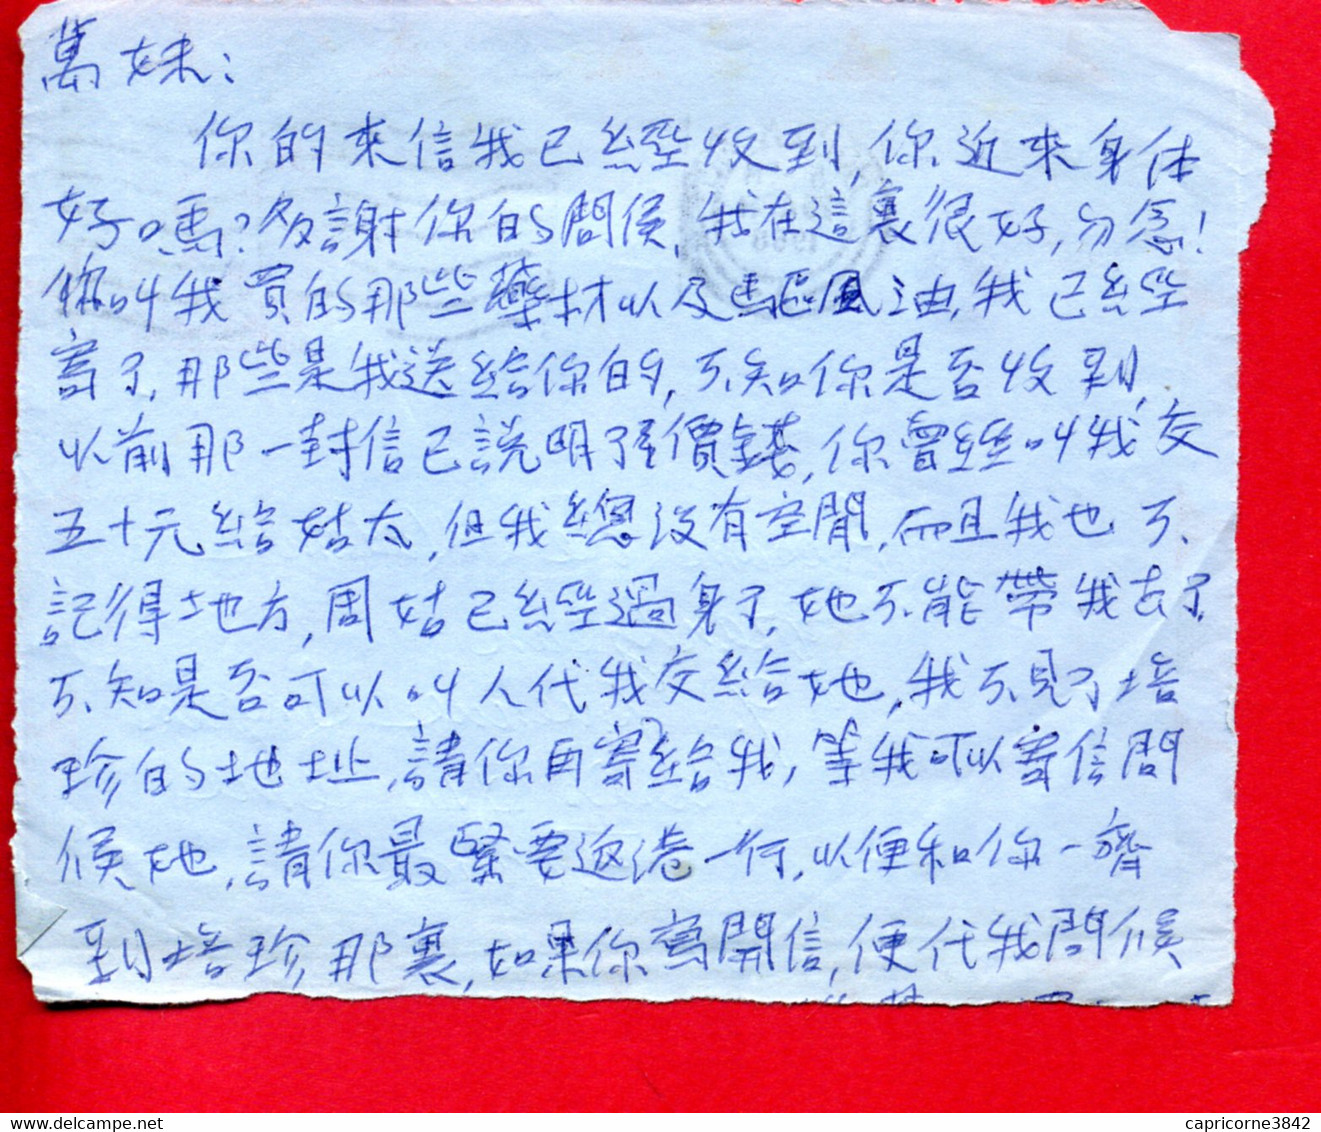 萬妹：
你的來信我已經收到，你近來身体
好嗎？多謝你的問侯，我在這裏很好，勿念！
你叫我買的那些藥材以及馬區風油，我已經
寄了，那些是我送給你的，不知你是否收到，
以前那一封信已説明了價錢，你曾經叫我交
五十元給姑太，但我總没有空閒，而且我也不
記得地方，周姑已經過身了，她不能帶我去了，
不知是否可以叫人代我交給她，我不見了培
珍的地址，請你再寄給我，等我可以寄信問
候她，請你最緊要返港一行，以便和你一齊
到培珍那裏，如果你寫開信，便代我問候
capricorne3842